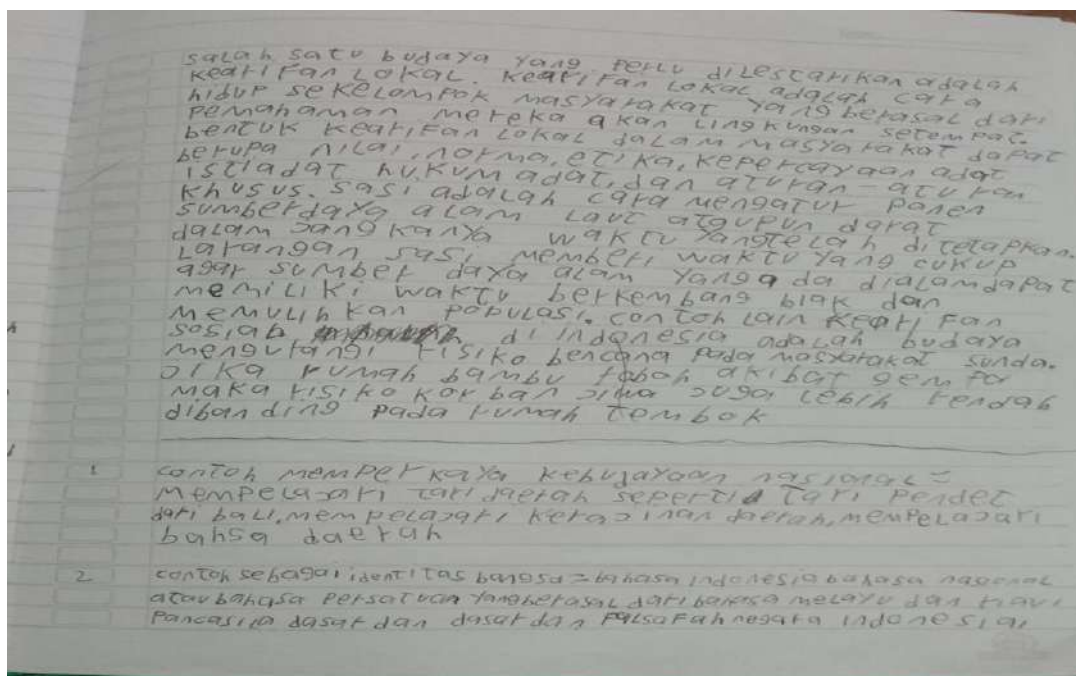 salah satu budaya yang perlu dilestarikan adalah
kearifan lokal. kearifan lokal adalah cara
hidup sekelompok masyarakat yang berasal dari
pemahaman mereka akan lingkungan setempat.
bentuk kearifan lokal dalam masyarakat dapat
berupa nilai, norma, etika, kepercayaan adat
istiadat hukum adat, dan aturan-aturan
khusus. sasi adalah cara mengatur panen
sumberdaya alam laut ataupun darat
dalam jangkanya waktu yangtelah ditetapkan.
Larangan sasi memberi waktu yang cukup
agar sumber daya alam yang ada dialamdapat
memiliki waktu berkembang biak dan
memulihkan populasi. contoh lain kearifan
sosiab di indonesia adalah budaya
mengurangi risiko bencana pada masyarakat sunda.
jika rumah bambu roboh akibat gempa
maka risiko korban jiwa juga lebih rendah
dibanding pada rumah tembok
1 contoh memperkaya kebudayaan nasional =
mempelajari tari daerah seperti tari pendet
dari bali, mempelajari kerajinan daerah, mempelajari
bahsa daerah
2 contoh sebagai identitas bangsa = bahasa indonesia bahasa nasional
atau bahasa persatuan yangberasal dari bahasa melayu dan
pancasila dasar dan dasar dan falsafah negara indonesia,